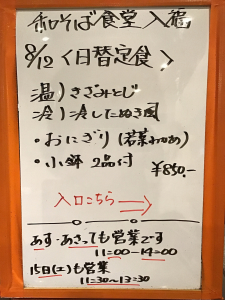 和そば食堂 入福
8/12 〈日替定食〉
温) きざみとじ
冷) 冷したぬき風
・おにぎり (若菜わかめ)
・小鉢 2品付
¥850.-
入口こちら
あす・あさっても営業です
11:00-14:00
15日(土)も営業
11:30~13:30